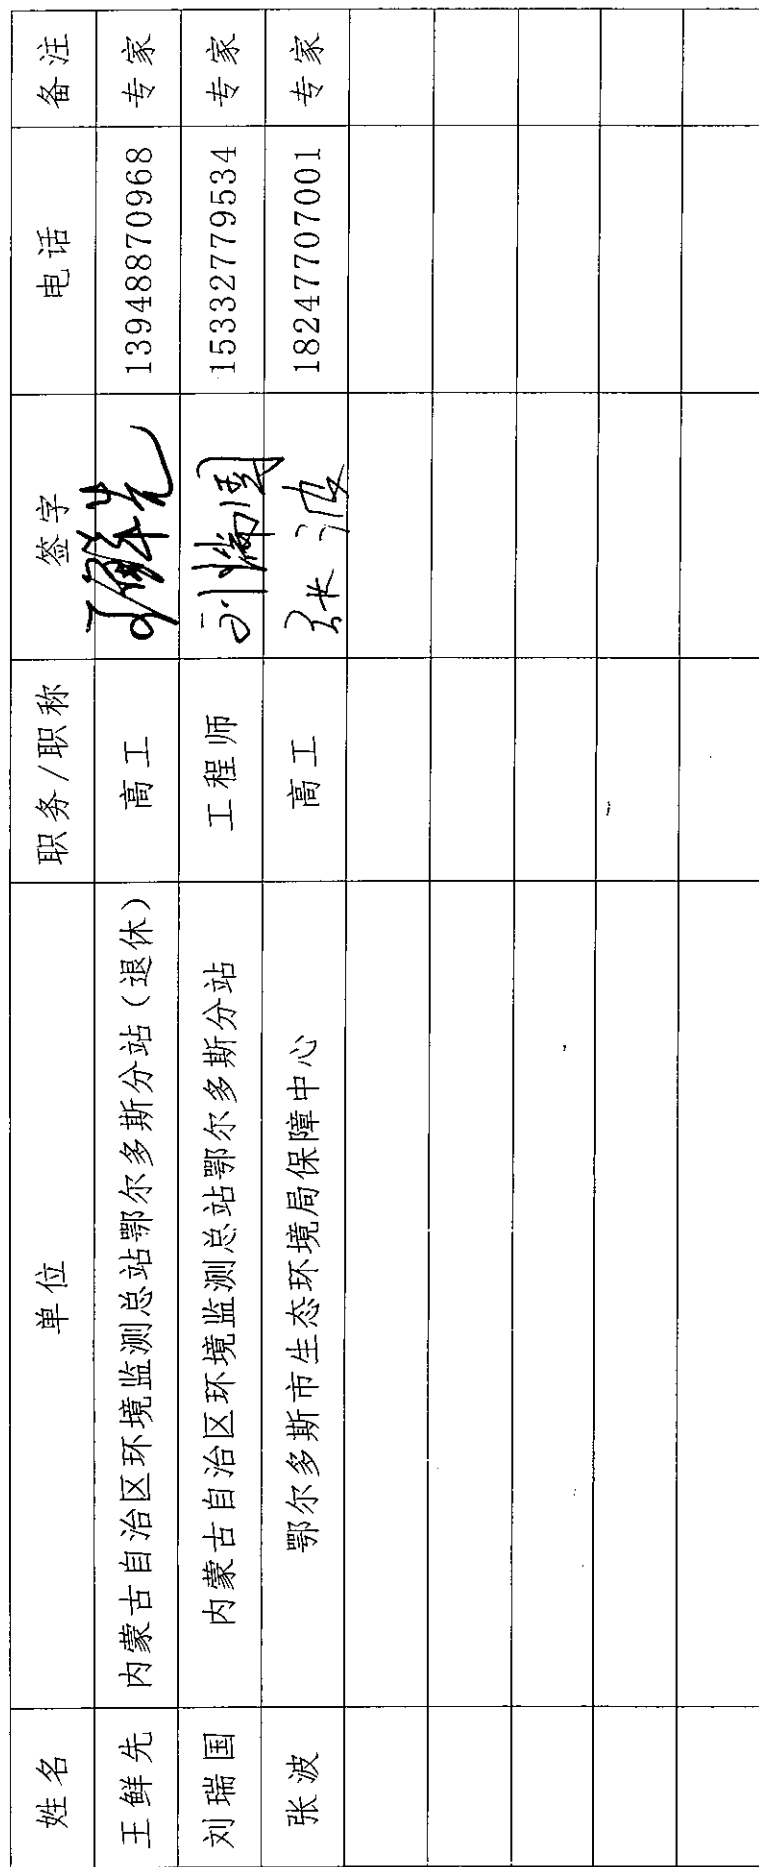 姓名 单位 职务/职称 签字 电话 备注
王鲜先 内蒙古自治区环境监测总站鄂尔多斯分站（退休） 高工 王鲜先 13948870968 专家
刘瑞国 内蒙古自治区环境监测总站鄂尔多斯分站 工程师 刘瑞国 15332779534 专家
张波 鄂尔多斯市生态环境局保障中心 高工 张波 18247707001 专家